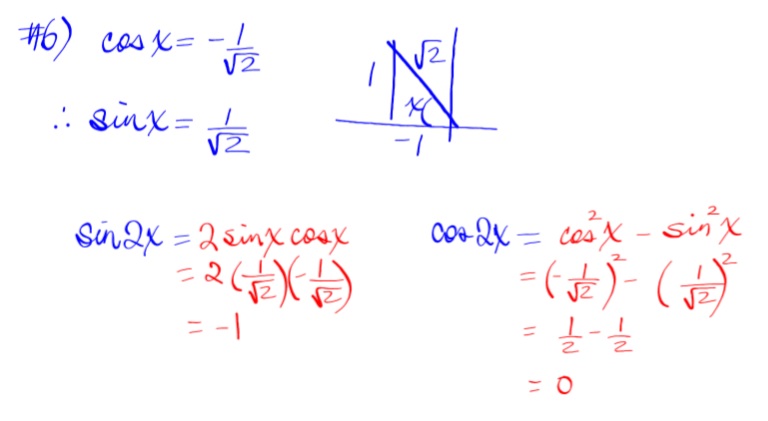 #6) cos x = -1/√2
∴ sin x = 1/√2
1 √2
x
-1
sin 2x = 2 sin x cos x
= 2(1/√2)(-1/√2)
= -1
cos 2x = cos²x - sin²x
= (-1/√2)² - (1/√2)²
= 1/2 - 1/2
= 0